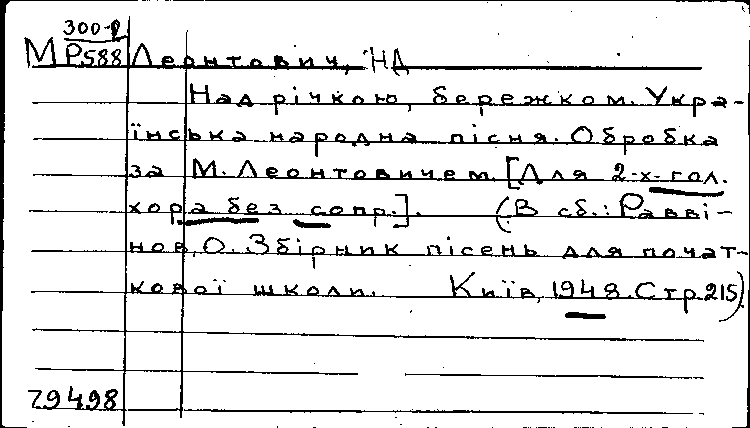 300-р
М Р588 Леонтович, НД
Над річкою, бережком. Укра-
їнська народна пісня. Обробка
за М. Леонтовичем. [Для 2-х гол.
хора без сопр.]. (В сб.: Равві-
нов, О. Збірник пісень для почат-
кової школи. Київ, 1948. Стр 215)
79498